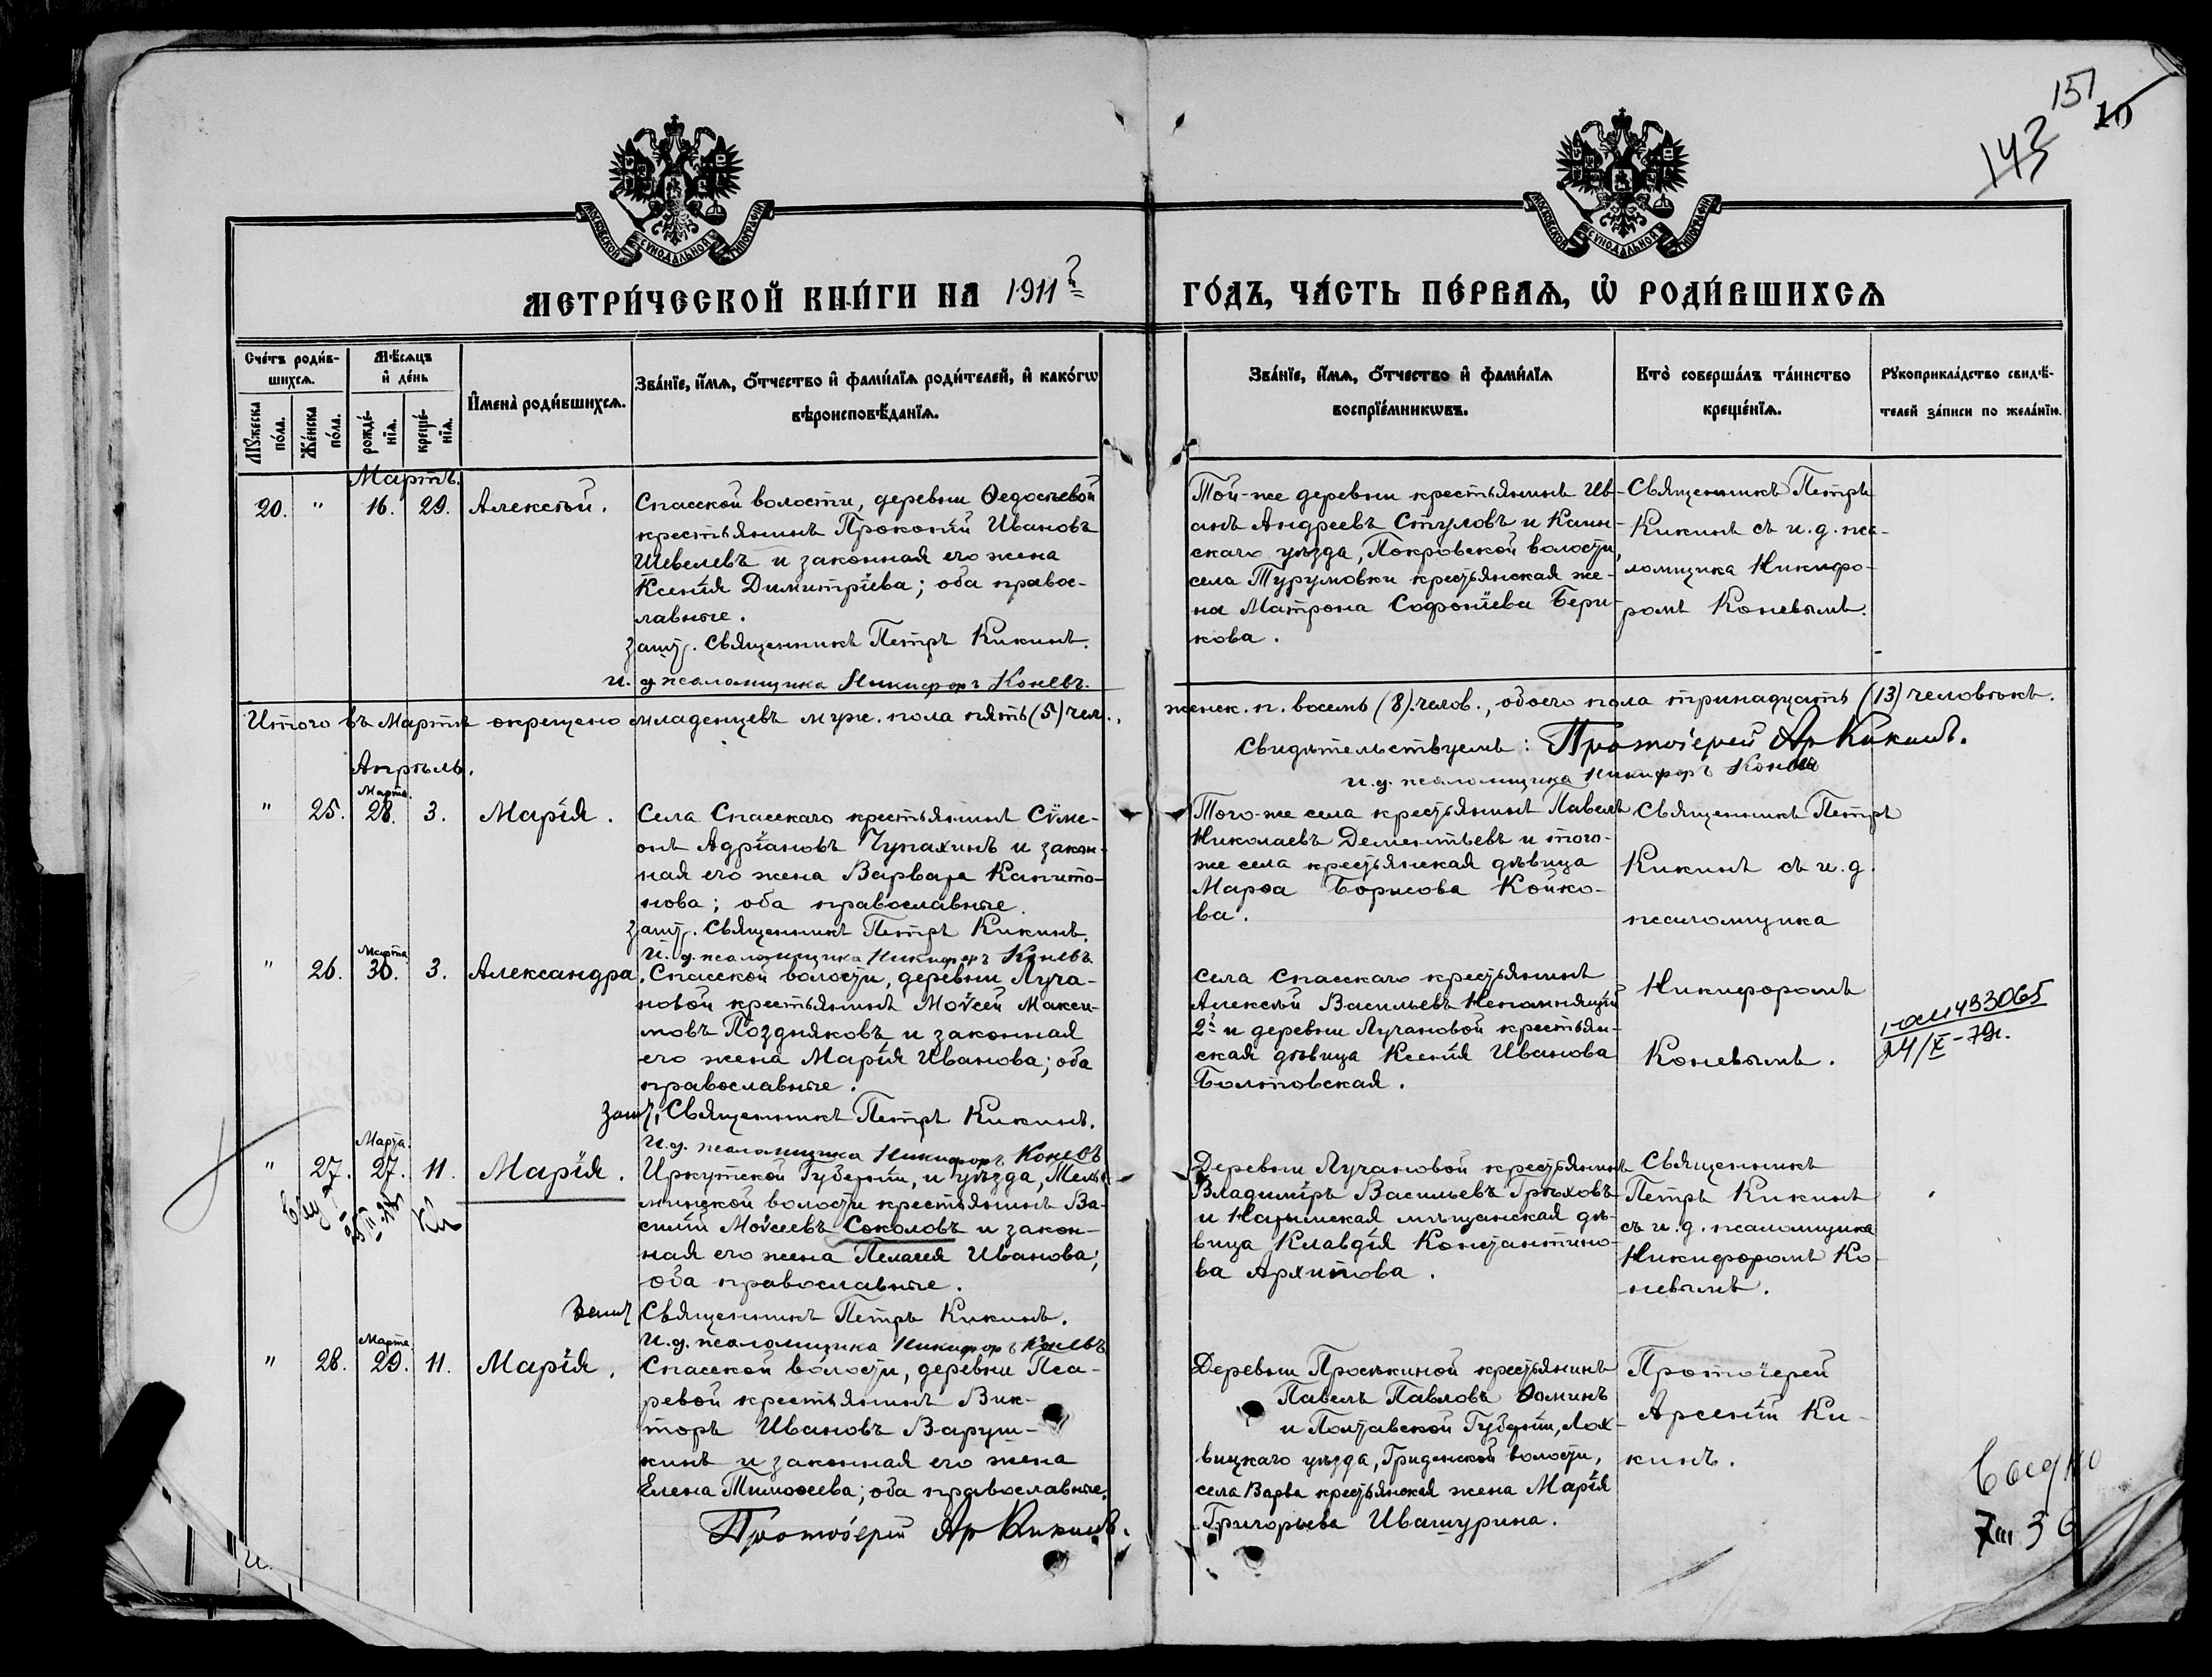 151
10
143
МОСКОВСКОЙ СѴНОДАЛЬНОЙ ТИПОГРАФІИ
МОСКОВСКОЙ СѴНОДАЛЬНОЙ ТИПОГРАФІИ
МЕТРИ́ЧЕСКОЙ КНИ́ГИ НА 1911 г.
ГО́ДЪ, ЧА́СТЬ ПЕ́РВАѦ, Ѡ҆ РОДИ́ВШИХСѦ
Сче́тъ роди́в-
шихсѧ.
Мѣ́сѧцъ
и҆ де́нь
Мꙋ́жеска
по́ла.
Же́нска
по́ла.
рожде́-
нїѧ.
креще́-
нїѧ.
И҆мена̀ роди́вшихсѧ.
Зва́нїе, и҆́мѧ, ѻ҆́тчество и҆ фами́лїѧ роди́телей, и҆ како́гѡ
вѣроисповѣ́данїѧ.
Зва́нїе, и҆́мѧ, ѻ҆́тчество и҆ фами́лїѧ
воспрїе́мникѡвъ.
Кто̀ соверша́лъ та́инство
креще́нїѧ.
Рꙋкоприкла́дство свидѣ́-
телей за́писи по жела́нїю.
Мартъ.
20. " 16. 29. Алексѣй.
Спасской волости, деревни Ѳедосѣевой
крестьянинъ Прокопій Ивановъ
Шевелевъ и законная его жена
Ксенія Димитріева; оба правос-
лавные.
Священникъ Петръ Кикинъ.
и. д. псаломщика Никифоръ Коневъ.
Той-же деревни крестьянинъ Ив-
анъ Андреевъ Стуловъ и Каин-
скаго уѣзда, Покровской волости,
села Турумовки крестьянская же-
на Матрона Софоніева Бери-
кова.
Священникъ Петръ
Кикинъ съ и. д. пса-
ломщика Никифо-
ромъ Коневымъ.
Итого въ Мартѣ окрещено младенцевъ муж. пола пять (5) чел.,
женск. п. восемь (8). челов., обоего пола тринадцать (13) человѣкъ.
Свидѣтельствуемъ: Протоіерей Ар Кикинъ.
и. д. псаломщика Никифоръ Коневъ
Апрѣль.
Марта.
" 25. 28. 3. Марія.
Села Спасскаго крестьянинъ Сѵме-
онъ Адріановъ Чупахинъ и закон-
ная его жена Варвара Капито-
нова; оба православные.
Священникъ Петръ Кикинъ.
И. д. псаломщика Никифоръ Коневъ
Того-же села крестьянинъ Павелъ
Николаевъ Дементьевъ и того-
же села крестьянская дѣвица
Марѳа Борисова Койко-
ва.
Священникъ Петръ
Кикинъ съ и. д.
псаломщика
Никифоромъ
Коневымъ.
Марта
" 26. 30. 3. Александра.
Спасской волости, деревни Луча-
новой крестьянинъ Моѵсей Макси-
мовъ Поздняковъ и законная
его жена Марія Иванова; оба
православные.
Священникъ Петръ Кикинъ.
И. д. псаломщика Никифоръ Коневъ
Села Спасскаго крестьянинъ
Алексѣй Васильевъ Непомнящій
2й и деревни Лучановой крестьян-
ская дѣвица Ксенія Иванова
Болтовская.
433065
24/X-79г.
Марта.
" 27. 27. 11. Марія.
Иркутской Губерніи, и уѣзда, Тель-
минской волости крестьянинъ Ва-
силій Моѵсеевъ Соколовъ и закон-
ная его жена Пелагея Иванова;
оба православные.
Священникъ Петръ Кикинъ.
И. д. псаломщика Никифоръ Коневъ
Деревни Лучановой крестьянинъ
Владиміръ Васильевъ Грѣховъ
и Нарымская мѣщанская дѣ-
вица Клавдія Константино-
ва Архипова.
Священникъ
Петръ Кикинъ
съ и. д. псаломщика
Никифоромъ Ко-
невымъ.
Марта
" 28. 29. 11. Марія.
Спасской волости, деревни Пса-
ревой крестьянинъ Вик-
торъ Ивановъ Варуш-
кинъ и законная его жена
Елена Тимоѳеева; оба православные.
Протоіерей Ар Кикинъ.
Деревни Просѣкиной крестьянинъ
Павелъ Павловъ Ѳоминъ
и Полтавской Губерніи, Лох-
вицкаго уѣзда, Гриденской волости,
села Варва крестьянская жена Марія
Григорьева Ивашурина.
Протоіерей
Арсеній Ки-
кинъ.